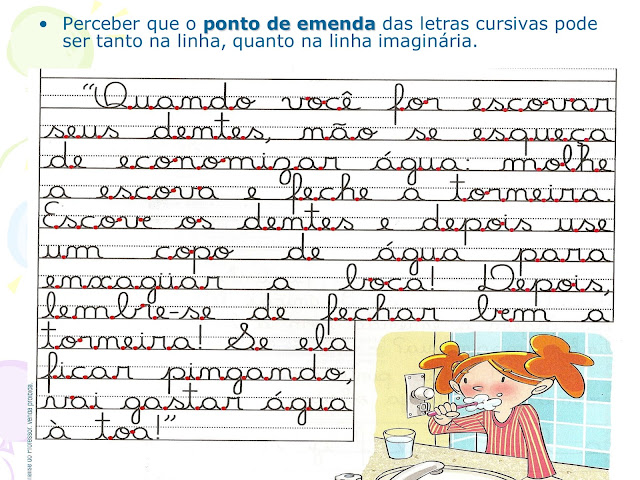 • Perceber que o ponto de emenda das letras cursivas pode
ser tanto na linha, quanto na linha imaginária.
“Quando você for escovar
seus dentes, não se esqueça
de economizar água: molhe
a escova e feche a torneira.
Escove os dentes e depois use
um copo de água para
enxaguar a boca! Depois,
lembre-se de fechar bem a
torneira! Se ela
ficar pingando,
vai gastar água
à toa!”